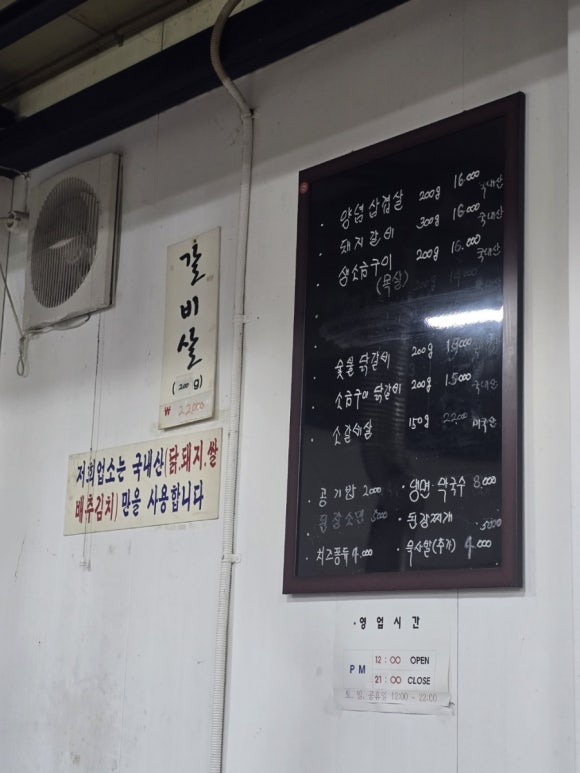 갈비살
(200g)
₩ 22,000
저희업소는 국내산(닭.돼지.쌀
배추김치)만을 사용합니다
· 양념삼겹살 200g 16.000 국내산
· 돼지갈비 300g 16.000 국내산
· 생소금구이 200g 16.000 국내산
(목살)
· 숯불 닭갈비 200g 15.000
· 소금구이 닭갈비 200g 15.000 국내산
· 소갈비살 150g 22.000 미국산
· 공기밥 2000
· 냉면·막국수 8.000
· 된장소면 3000
· 된장찌개 5000
· 치즈퐁듀 4.000
· 묵사발(추가) 4.000
·영업시간
PM 12:00 OPEN
21:00 CLOSE
토, 일, 공휴일 12:00 - 22:00